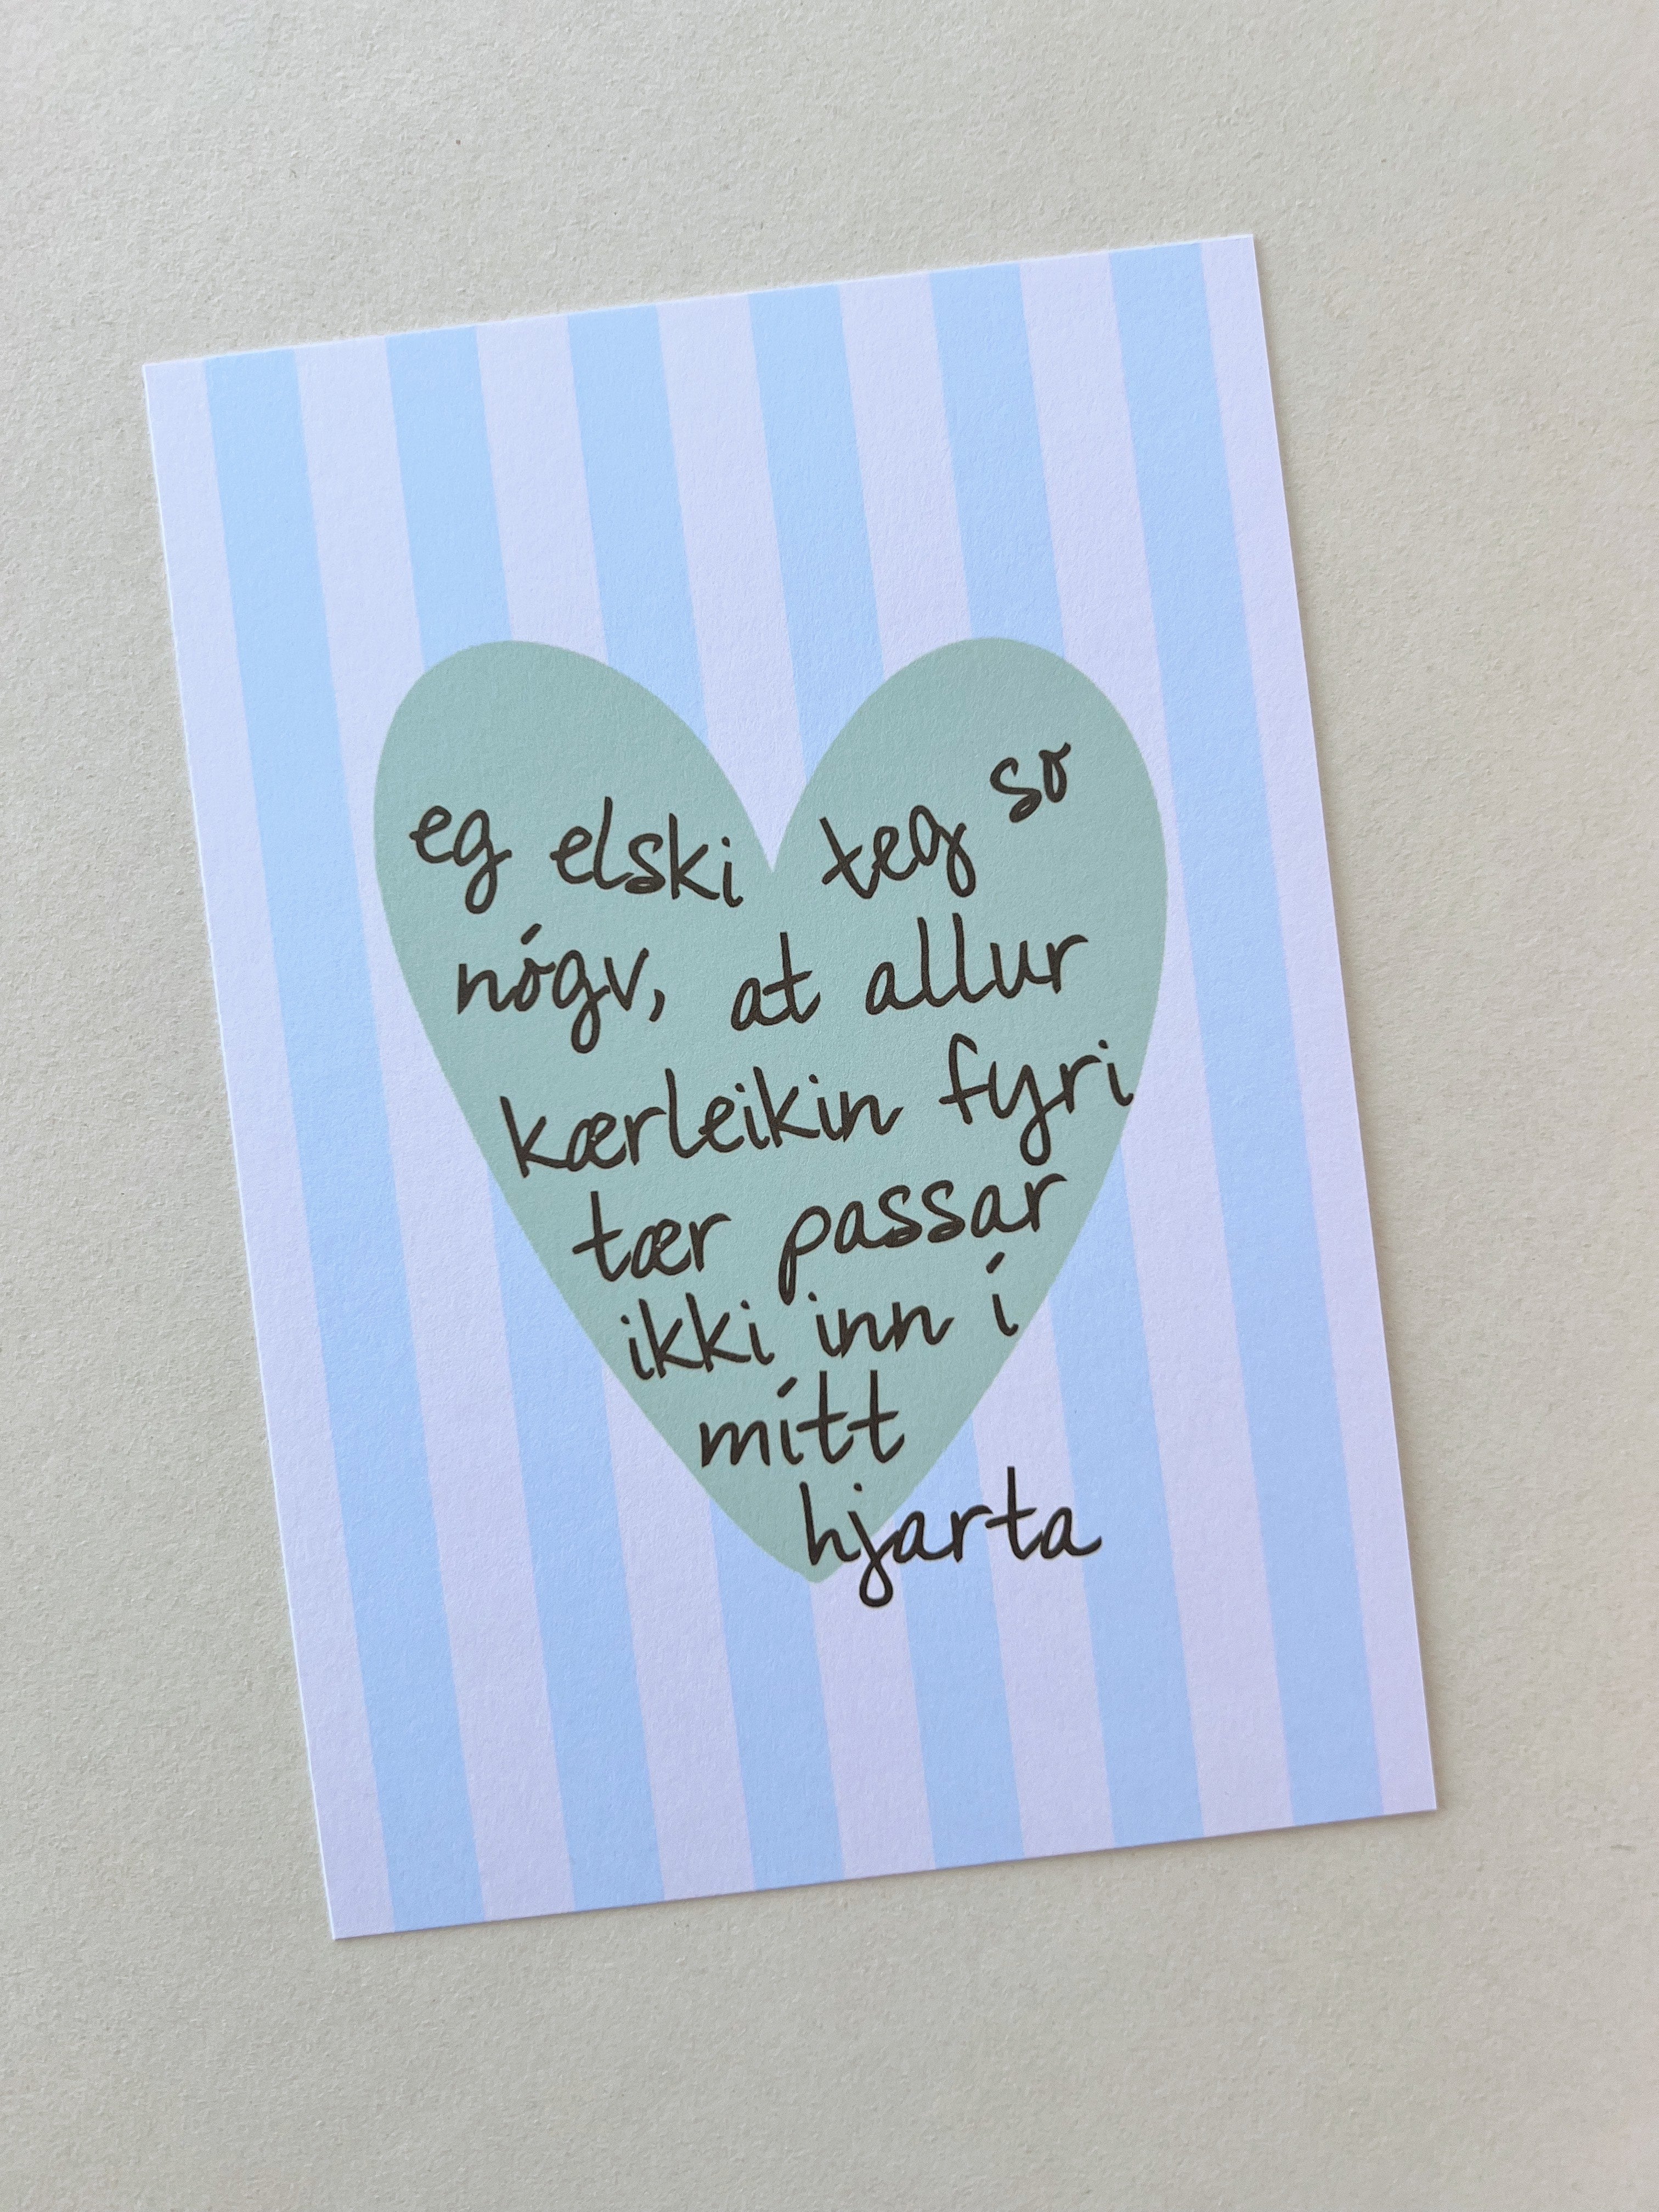 eg elski teg so
nógv, at allur
kærleikin fyri
tær passar
ikki inn í
mítt
hjarta